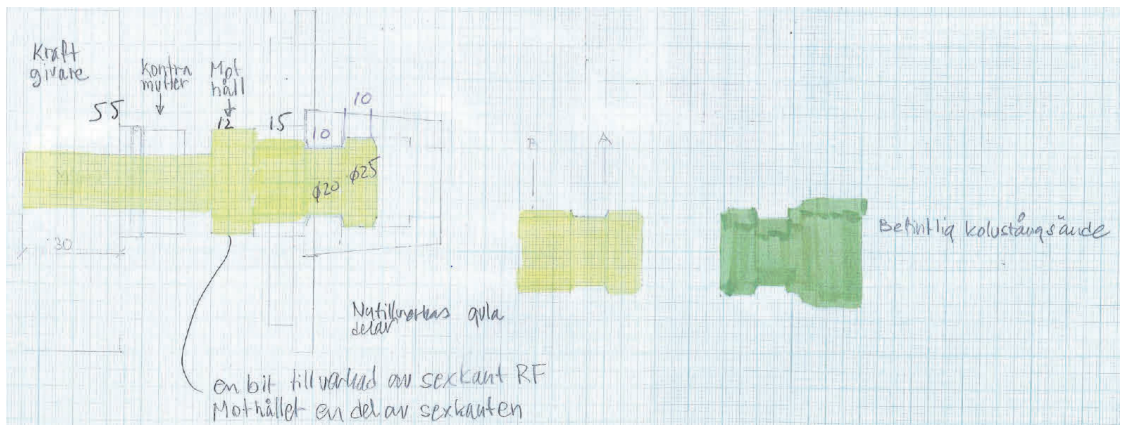 Kraft
givare
Kontra
mutter
Mot
håll
55
12
15
10
10
ϕ20
ϕ25
30
B
A
Befintlig kolvstångsände
Nytillverkas gula
delar
en bit tillverkad av sexkant RF
Mothållet en del av sexkanten